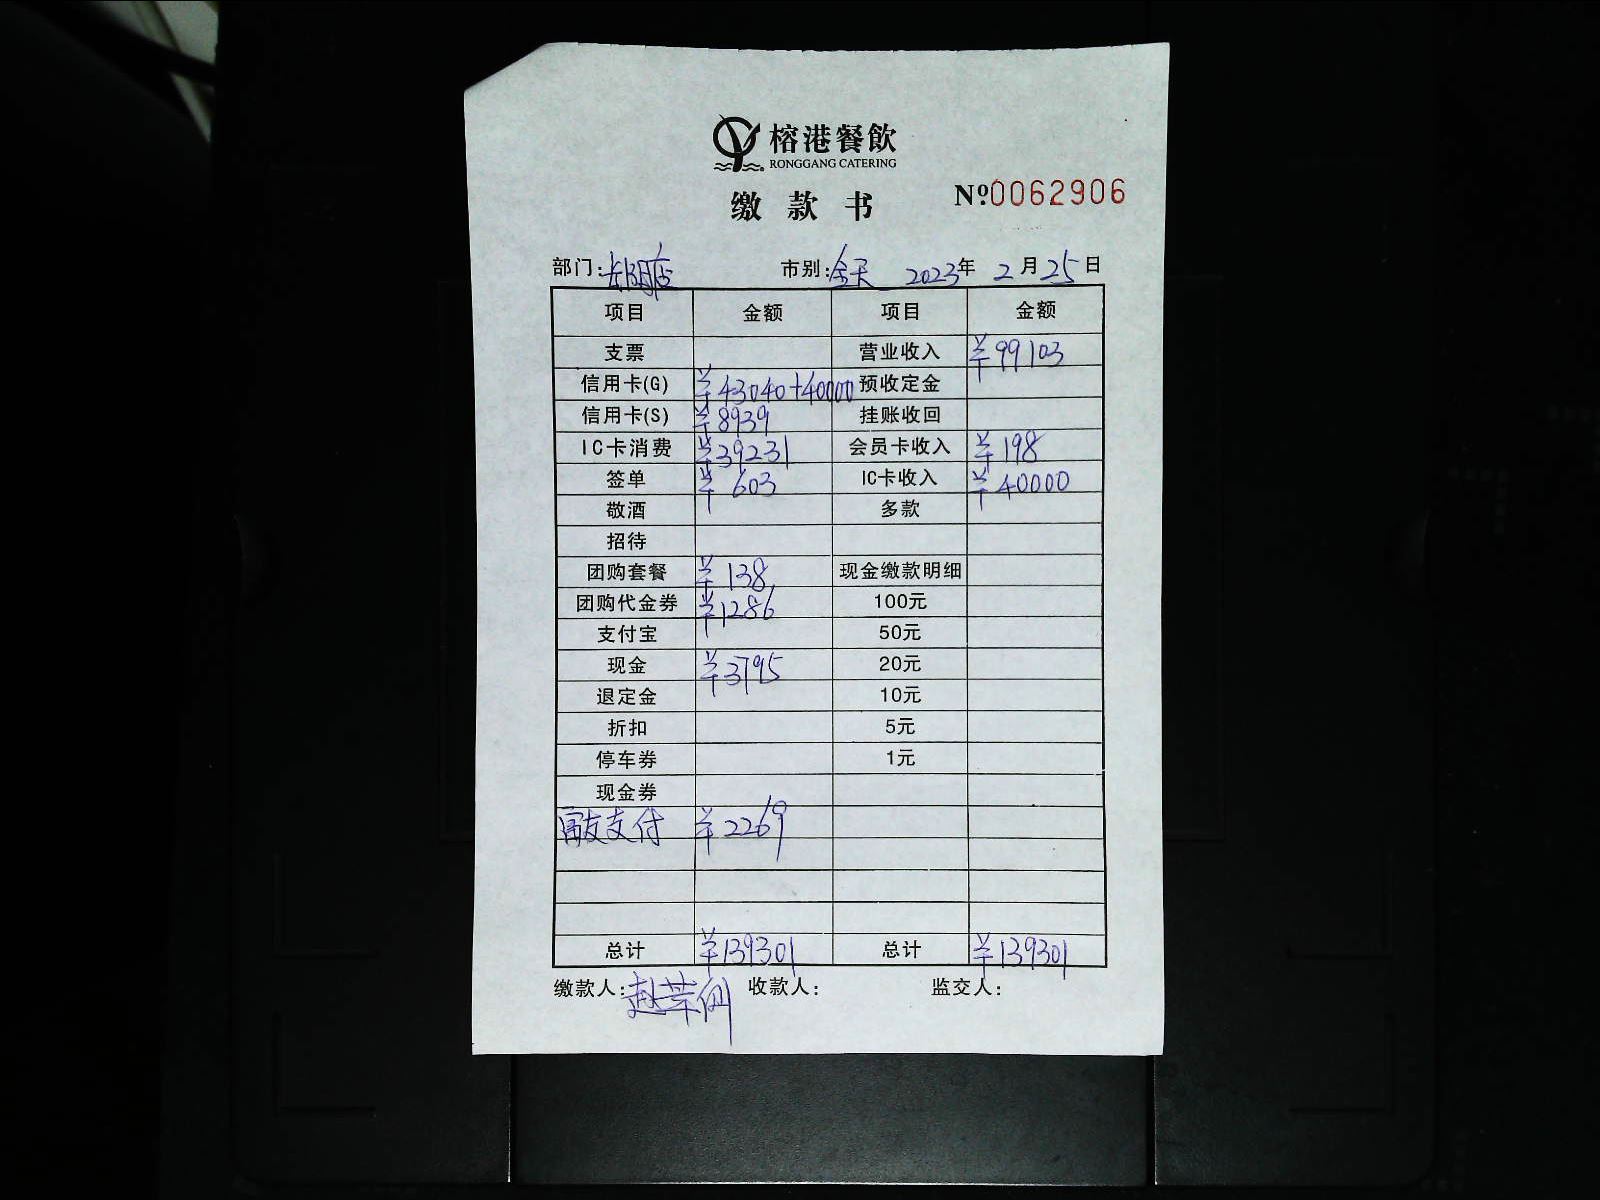 榕港餐飲
RONGGANG CATERING
缴款书 №:0062906
部门: 长阳店 市别: 全天 2023年 2月 25日
项目 金额 项目 金额
支票 营业收入 ¥99103
信用卡(G) ¥43040+40000 预收定金
信用卡(S) ¥8939 挂账收回
IC卡消费 ¥39231 会员卡收入 ¥198
签单 ¥603 IC卡收入 ¥40000
敬酒 多款
招待
团购套餐 ¥138 现金缴款明细
团购代金券 ¥1286 100元
支付宝 50元
现金 ¥3795 20元
退定金 10元
折扣 5元
停车券 1元
现金券
富友支付 ¥2269
总计 ¥139301 总计 ¥139301
缴款人: 赵荣 收款人: 监交人: